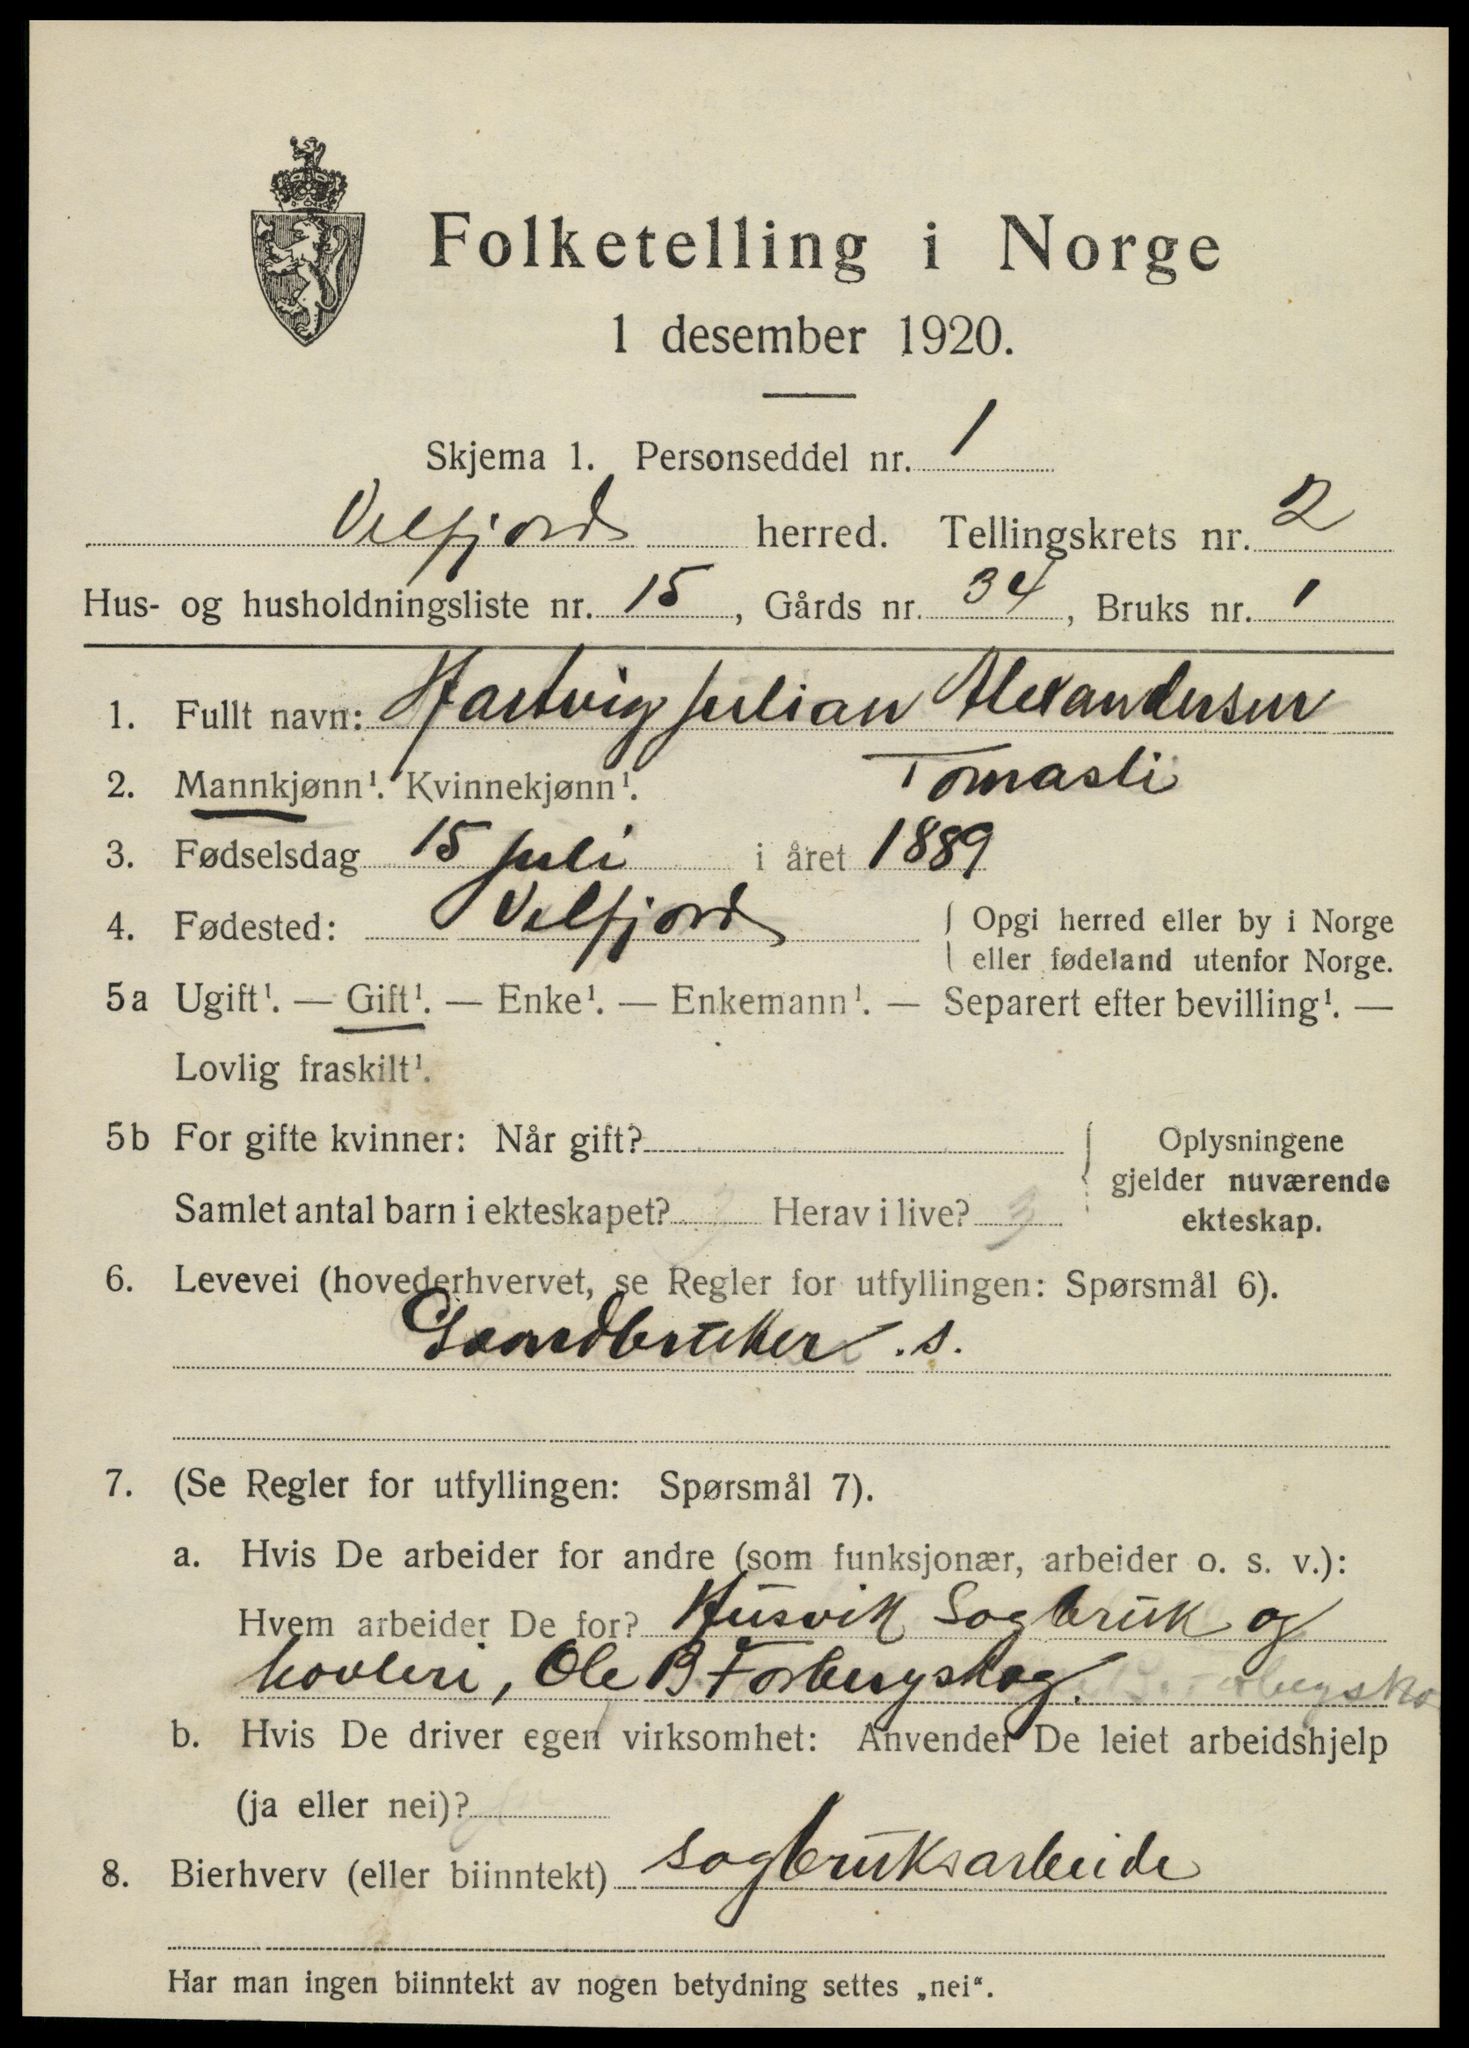 Folketelling i Norge
1 desember 1920.
Skjema 1. Personseddel nr. 1
Velfjord herred. Tellingskrets nr. 2
Hus- og husholdningsliste nr. 15, Gårds nr. 34, Bruks nr. 1
1. Fullt navn: Hartvig Julian Alexandersen
Tomasli
2. Mannkjønn¹. Kvinnekjønn¹.
3. Fødselsdag 15 juli i året 1889
4. Fødested: Velfjord { Opgi herred eller by i Norge
eller fødeland utenfor Norge.
5a Ugift¹. — Gift¹. — Enke¹. — Enkemann¹. — Separert efter bevilling¹. —
Lovlig fraskilt¹.
5b For gifte kvinner: Når gift? { Oplysningene
gjelder nuværende
Samlet antal barn i ekteskapet? 3 Herav i live? 3
ekteskap.
6. Levevei (hovederhvervet, se Regler for utfyllingen: Spørsmål 6).
Gaardbruker. s.
7. (Se Regler for utfyllingen: Spørsmål 7).
a. Hvis De arbeider for andre (som funksjonær, arbeider o. s. v.):
Hvem arbeider De for? Husvik Sagbruk og
hovleri, Ole B Forbergskog.
b. Hvis De driver egen virksomhet: Anvender De leiet arbeidshjelp
(ja eller nei)?
8. Bierhverv (eller biinntekt) sagbruksarbeide
Har man ingen biinntekt av nogen betydning settes „nei“.